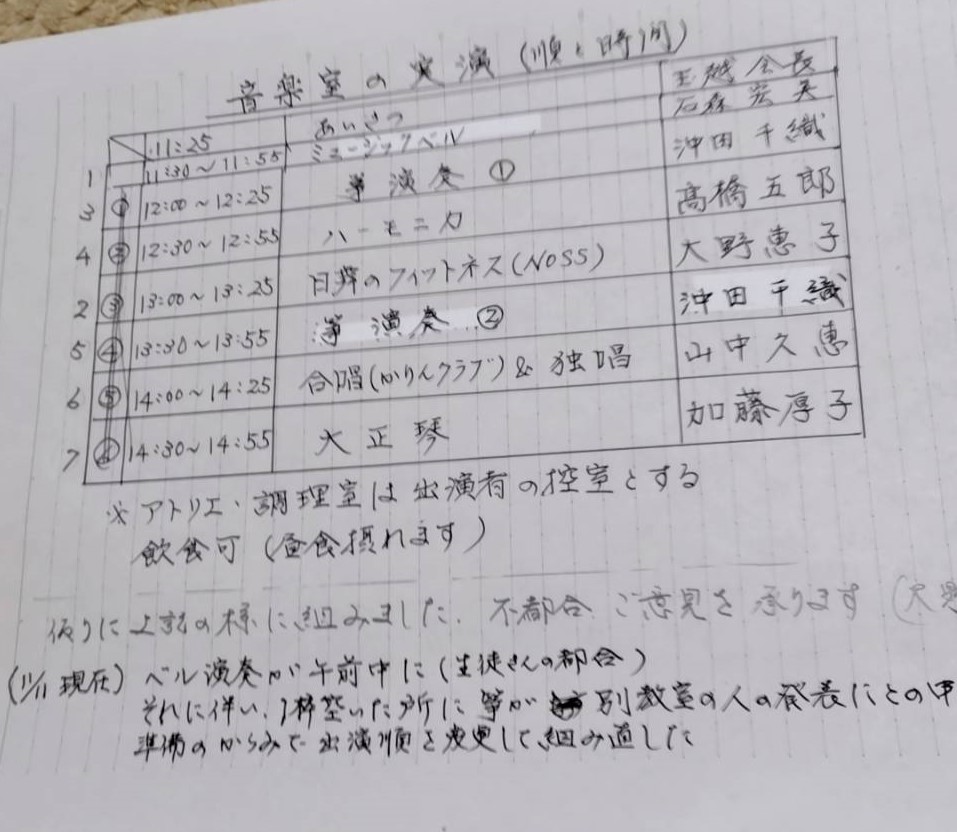 音楽室の実演 (順と時間)
11:25 あいさつ 玉越会長
1 11:30～11:55 ミュージックベル 石森宏美
3 ① 12:00～12:25 箏演奏 ① 沖田千織
4 ② 12:30～12:55 ハーモニカ 高橋五郎
2 ③ 13:00～13:25 日舞のフィットネス(NOSS) 大野恵子
5 ④ 13:30～13:55 箏 演奏 ② 沖田千織
6 ⑤ 14:00～14:25 合唱(かりんクラブ) & 独唱 山中久恵
7 14:30～14:55 大正琴 加藤厚子
※アトリエ・調理室は出演者の控室とする
飲食可 (昼食摂れます)
仮りに上記の様に組みました. 不都合 ご意見を承ります (大野
(11/11 現在) ベル演奏が午前中に (生徒さんの都合)
それに伴い、1枠空いた所に箏が 別教室の人の発表にとの申
準備のからみで 出演順を変更して組み直した